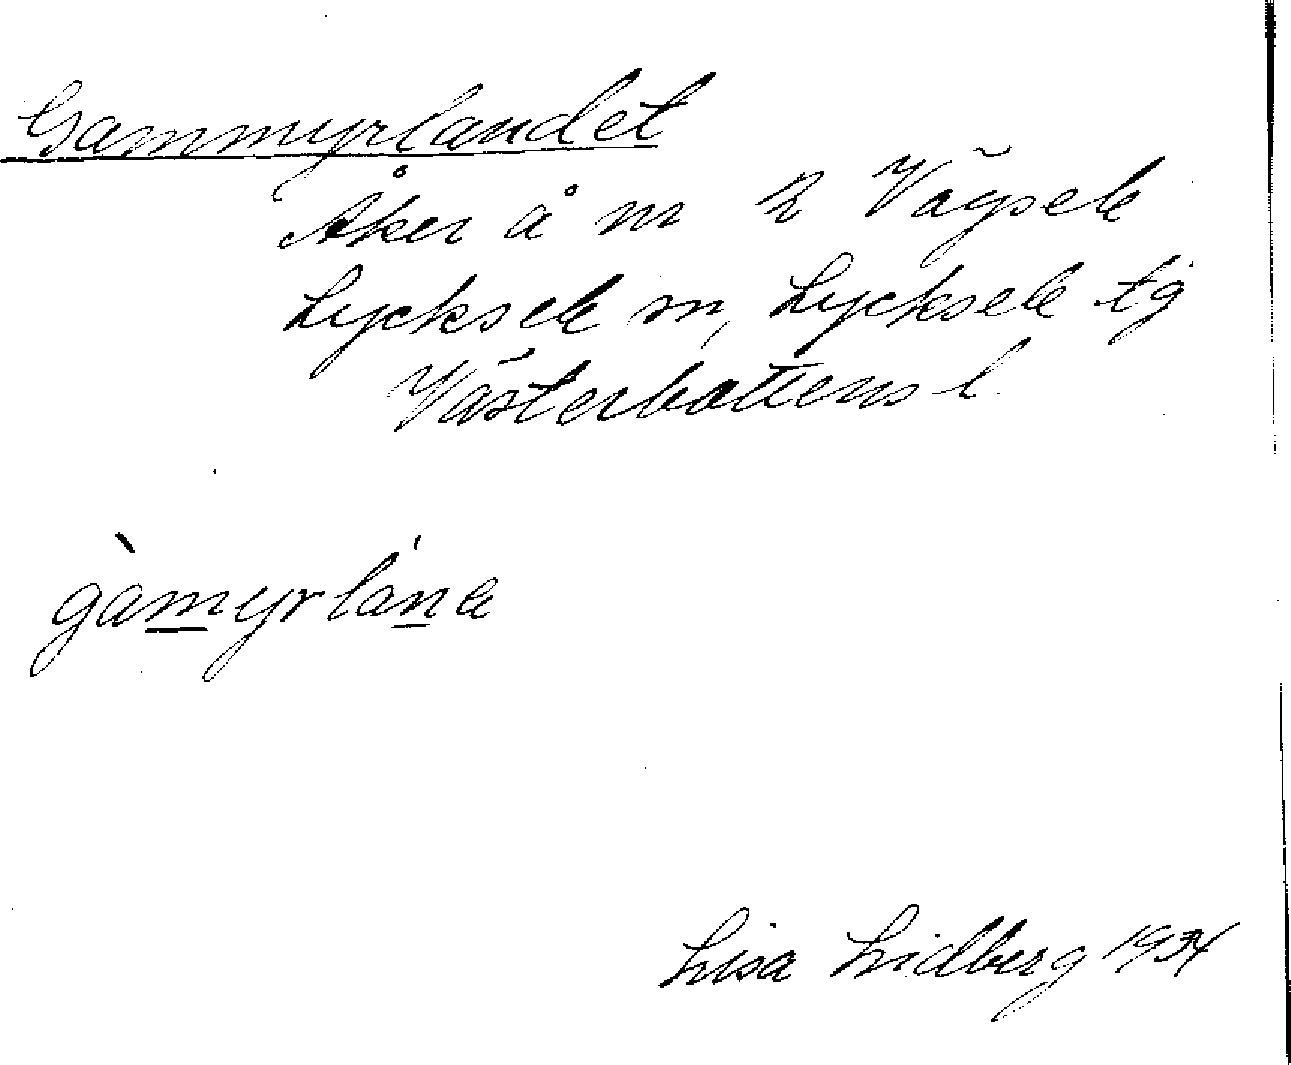 Gammyrlandet
Åker å nr 2 Vägsele
Lycksele sn, Lycksele tg
Västerbottens l.
gàmyrlánₑ
Lisa Lidberg 1934